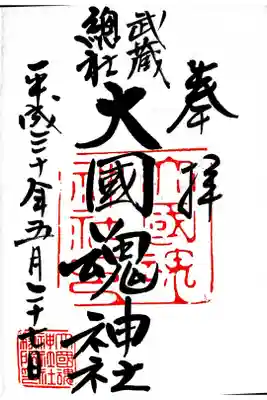 奉拝
武蔵
總社
大國魂神社
平成三十年五月二十七日
大國魂神社